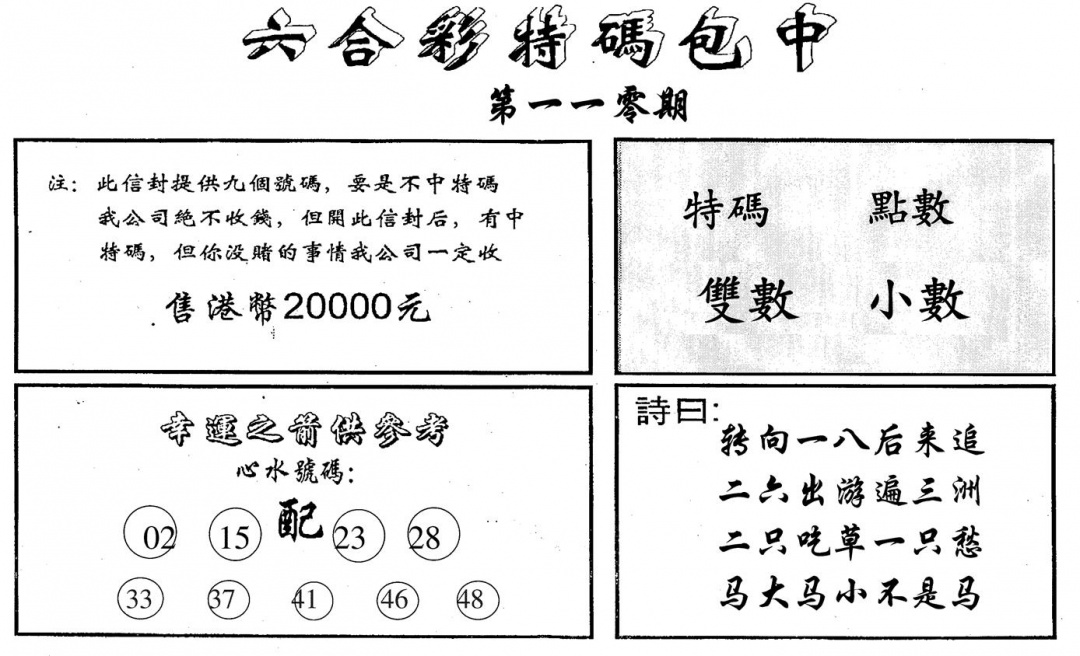 六合彩特碼包中
第一一零期
注：此信封提供九個號碼，要是不中特碼
我公司絕不收錢，但開此信封后，有中
特碼，但你没賭的事情我公司一定收
售港幣20000元
特碼 點數
雙數 小數
幸運之箭供參考
心水號碼：
02 15 配 23 28
33 37 41 46 48
詩曰：
转向一八后来追
二六出游遍三洲
二只吃草一只愁
马大马小不是马